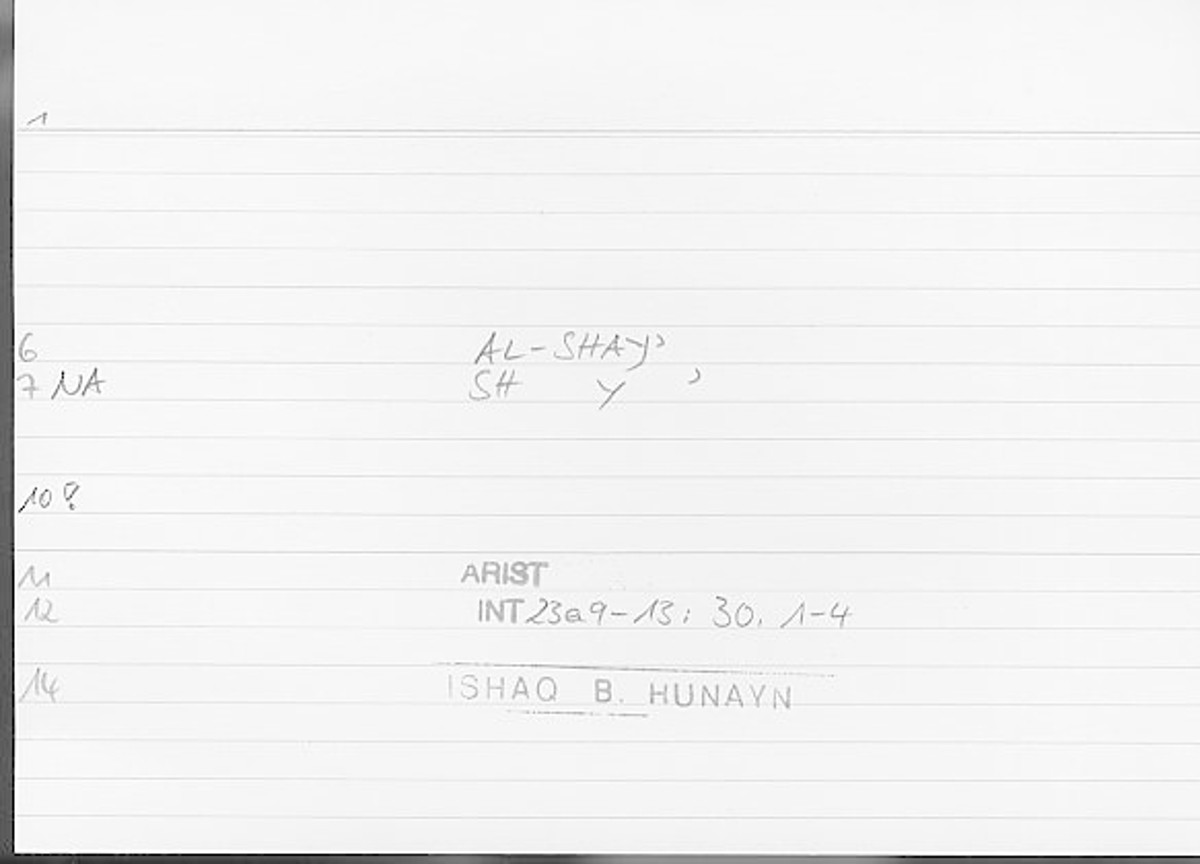 1
6 AL-SHAY'
7 NA SH Y '
10 ?
11 ARIST
12 INT 23a9-13; 30, 1-4
14 ISHAQ B. HUNAYN